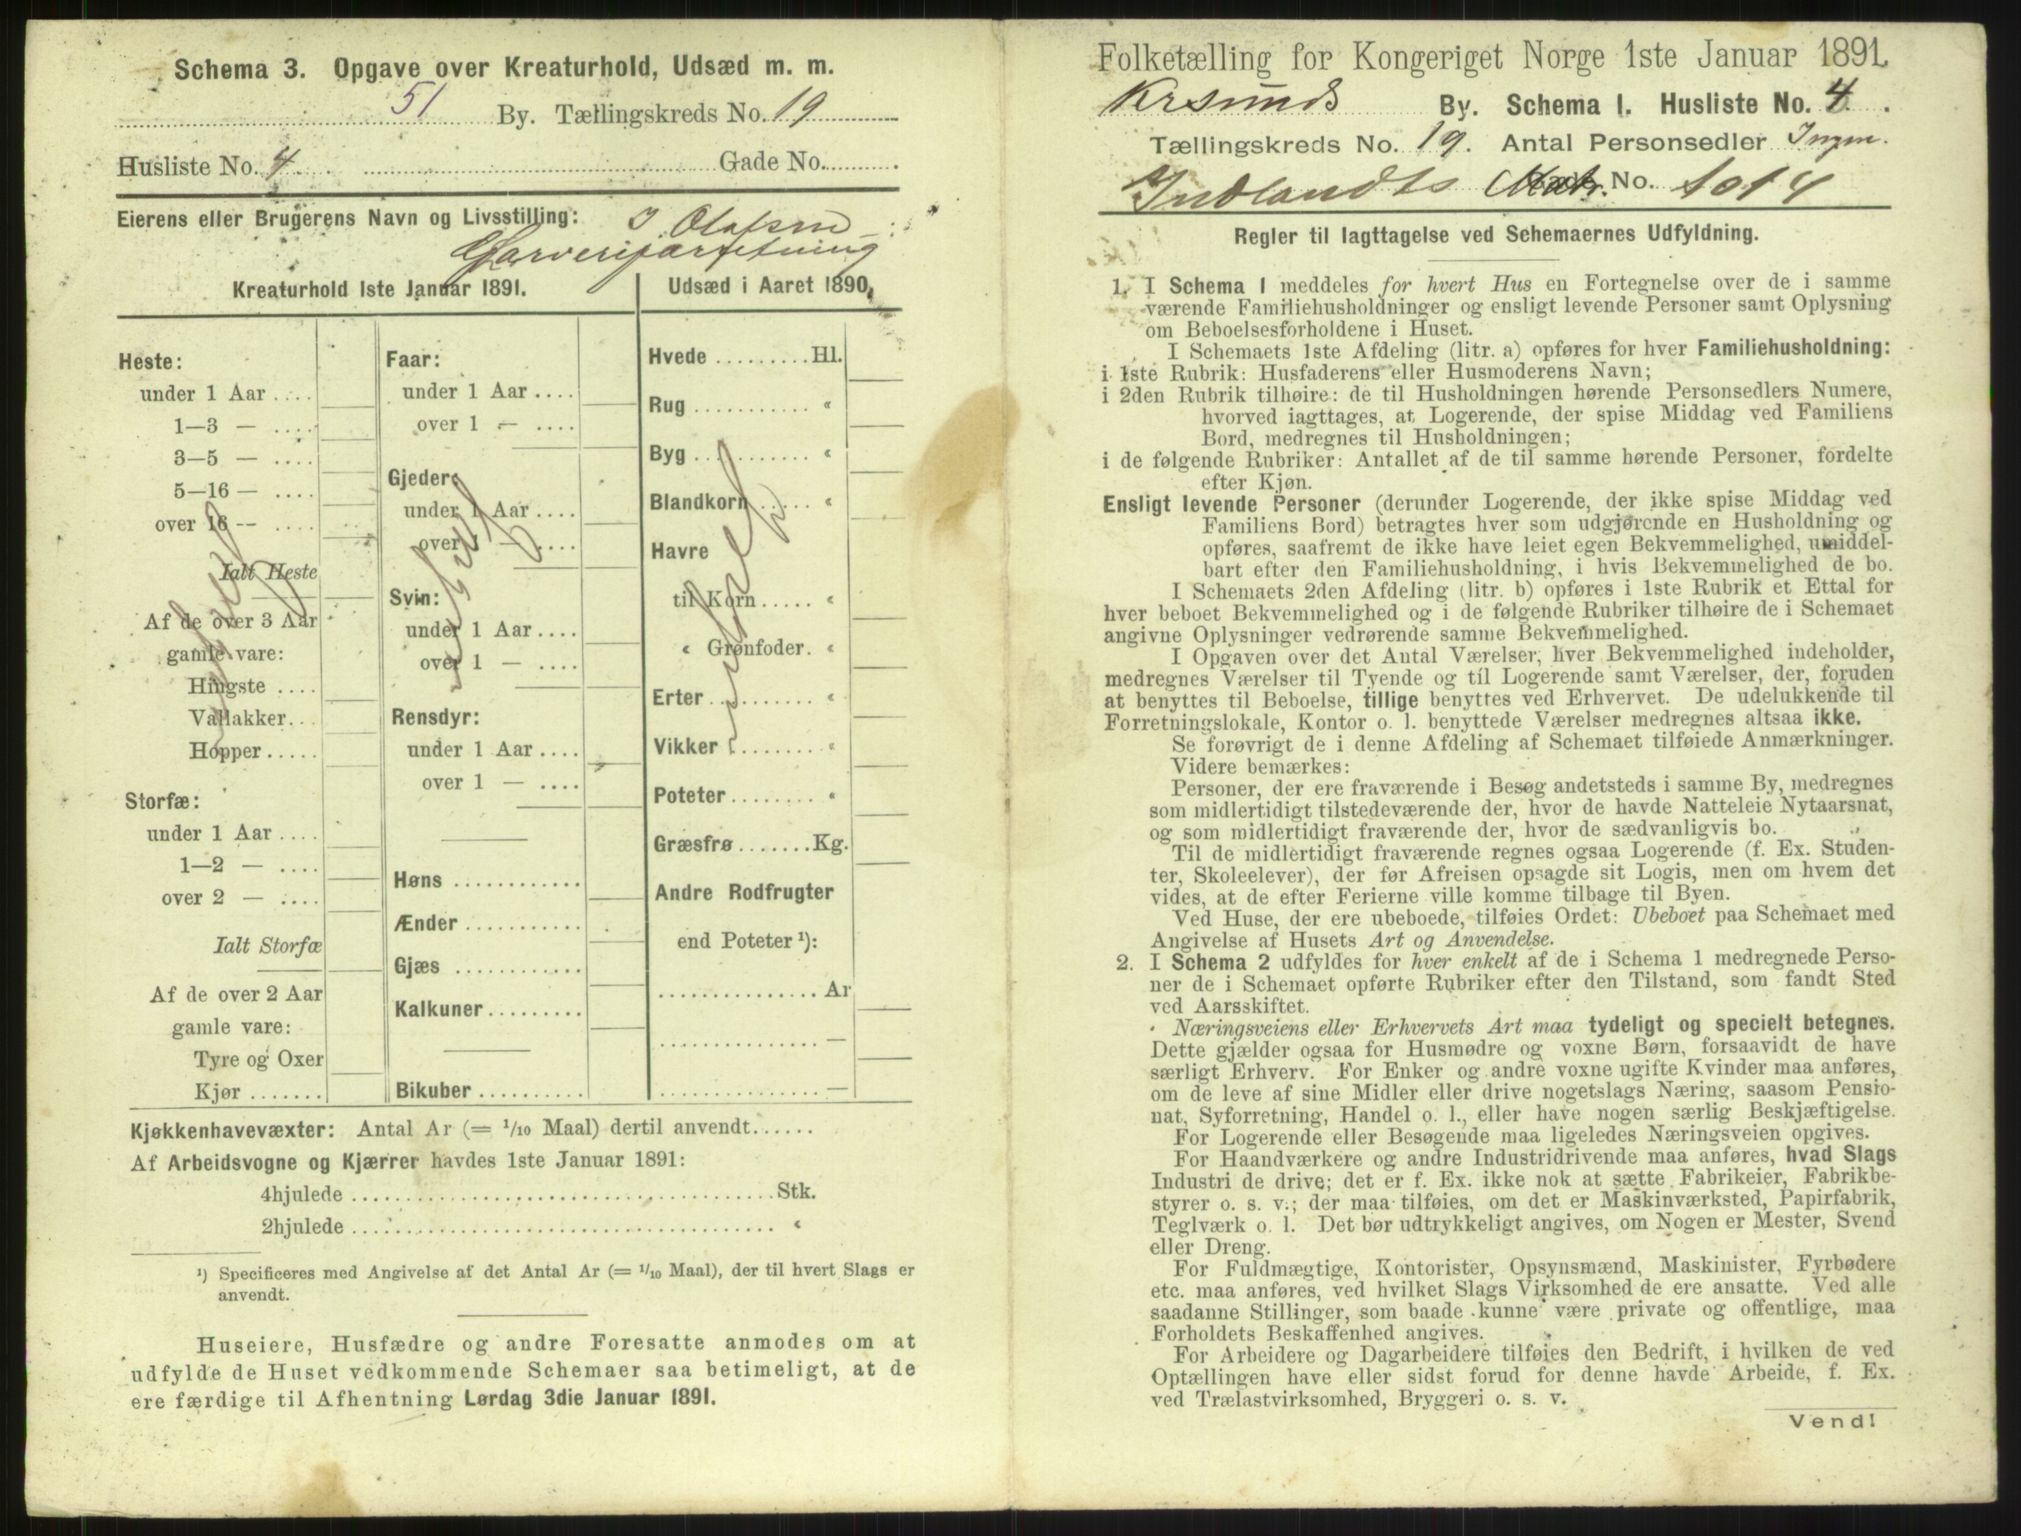 Schema 3. Opgave over Kreaturhold, Udsæd m. m.
51 By. Tællingskreds No. 19
Husliste No. 4 Gade No.
Eierens eller Brugerens Navn og Livsstilling: J. Olafsen
Garveriforretning
Kreaturhold 1ste Januar 1891.
Heste:
under 1 Aar
1—3 —
3—5 —
5—16 —
over 16 —
Ialt Heste
Af de over 3 Aar
gamle vare:
Hingste
Vallakker
Hopper
Storfæ:
under 1 Aar
1—2 —
over 2 —
Ialt Storfæ
Af de over 2 Aar
gamle vare:
Tyre og Oxer
Kjør
Faar:
under 1 Aar
over 1 —
Gjeder:
under 1 Aar
over 1 —
Svin:
under 1 Aar
over 1 —
Rensdyr:
under 1 Aar
over 1 —
Høns
Ænder
Gjæs
Kalkuner
Bikuber
Udsæd i Aaret 1890.
Hvede Hl.
Rug "
Byg "
Blandkorn "
Havre
til Korn "
" Grønfoder "
Erter "
Vikker "
Poteter "
Græsfrø Kg.
Andre Rodfrugter
end Poteter ¹):
Ar
—
—
Kjøkkenhavevæxter: Antal Ar (= 1/10 Maal) dertil anvendt
Af Arbeidsvogne og Kjærrer havdes 1ste Januar 1891:
4hjulede Stk.
2hjulede "
¹) Specificeres med Angivelse af det Antal Ar (= 1/10 Maal), der til hvert Slags er
anvendt.
Huseiere, Husfædre og andre Foresatte anmodes om at
udfylde de Huset vedkommende Schemaer saa betimeligt, at de
ere færdige til Afhentning Lørdag 3die Januar 1891.
Folketælling for Kongeriget Norge 1ste Januar 1891.
Krsunds By. Schema 1. Husliste No. 4.
Tællingskreds No. 19. Antal Personsedler Ingen.
Indlandts Matr. No. 1014
Regler til Iagttagelse ved Schemaernes Udfyldning.
1. I Schema 1 meddeles for hvert Hus en Fortegnelse over de i samme
værende Familiehusholdninger og ensligt levende Personer samt Oplysning
om Beboelsesforholdene i Huset.
I Schemaets 1ste Afdeling (litr. a) opføres for hver Familiehusholdning:
i 1ste Rubrik: Husfaderens eller Husmoderens Navn;
i 2den Rubrik tilhøire: de til Husholdningen hørende Personsedlers Numere,
hvorved iagttages, at Logerende, der spise Middag ved Familiens
Bord, medregnes til Husholdningen;
i de følgende Rubriker: Antallet af de til samme hørende Personer, fordelte
efter Kjøn.
Ensligt levende Personer (derunder Logerende, der ikke spise Middag ved
Familiens Bord) betragtes hver som udgjørende en Husholdning og
opføres, saafremt de ikke have leiet egen Bekvemmelighed, umiddel-
bart efter den Familiehusholdning, i hvis Bekvemmelighed de bo.
I Schemaets 2den Afdeling (litr. b) opføres i 1ste Rubrik et Ettal for
hver beboet Bekvemmelighed og i de følgende Rubriker tilhøire de i Schemaet
angivne Oplysninger vedrørende samme Bekvemmelighed.
I Opgaven over det Antal Værelser, hver Bekvemmelighed indeholder,
medregnes Værelser til Tyende og til Logerende samt Værelser, der, foruden
at benyttes til Beboelse, tillige benyttes ved Erhvervet. De udelukkende til
Forretningslokale, Kontor o. l. benyttede Værelser medregnes altsaa ikke.
Se forøvrigt de i denne Afdeling af Schemaet tilføiede Anmærkninger.
Videre bemærkes:
Personer, der ere fraværende i Besøg andetsteds i samme By, medregnes
som midlertidigt tilstedeværende der, hvor de havde Natteleie Nytaarsnat,
og som midlertidigt fraværende der, hvor de sædvanligvis bo.
Til de midlertidigt fraværende regnes ogsaa Logerende (f. Ex. Studen-
ter, Skoleelever), der før Afreisen opsagde sit Logis, men om hvem det
vides, at de efter Ferierne ville komme tilbage til Byen.
Ved Huse, der ere ubeboede, tilføies Ordet: Ubeboet paa Schemaet med
Angivelse af Husets Art og Anvendelse.
2. I Schema 2 udfyldes for hver enkelt af de i Schema 1 medregnede Perso-
ner de i Schemaet opførte Rubriker efter den Tilstand, som fandt Sted
ved Aarsskiftet.
Næringsveiens eller Erhvervets Art maa tydeligt og specielt betegnes.
Dette gjælder ogsaa for Husmødre og voxne Børn, forsaavidt de have
særligt Erhverv. For Enker og andre voxne ugifte Kvinder maa anføres,
om de leve af sine Midler eller drive nogetslags Næring, saasom Pensio-
nat, Syforretning, Handel o. l., eller have nogen særlig Beskjæftigelse.
For Logerende eller Besøgende maa ligeledes Næringsveien opgives.
For Haandværkere og andre Industridrivende maa anføres, hvad Slags
Industri de drive; det er f. Ex. ikke nok at sætte Fabrikeier, Fabrikbe-
styrer o. s. v.; der maa tilføies, om det er Maskinværksted, Papirfabrik,
Teglværk o. l. Det bør udtrykkeligt angives, om Nogen er Mester, Svend
eller Dreng.
For Fuldmægtige, Kontorister, Opsynsmænd, Maskinister, Fyrbødere
etc. maa anføres, ved hvilket Slags Virksomhed de ere ansatte. Ved alle
saadanne Stillinger, som baade kunne være private og offentlige, maa
Forholdets Beskaffenhed angives.
For Arbeidere og Dagarbeidere tilføies den Bedrift, i hvilken de ved
Optællingen have eller sidst forud for denne havde Arbeide, f. Ex.
ved Trælastvirksomhed, Bryggeri o. s. v.
Vend!